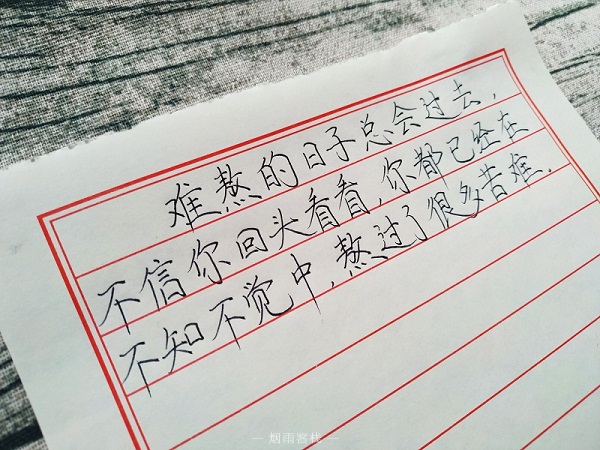 难熬的日子总会过去，
不信你回头看看，你都已经在
不知不觉中，熬过了很多苦难．
— 烟雨客栈 —